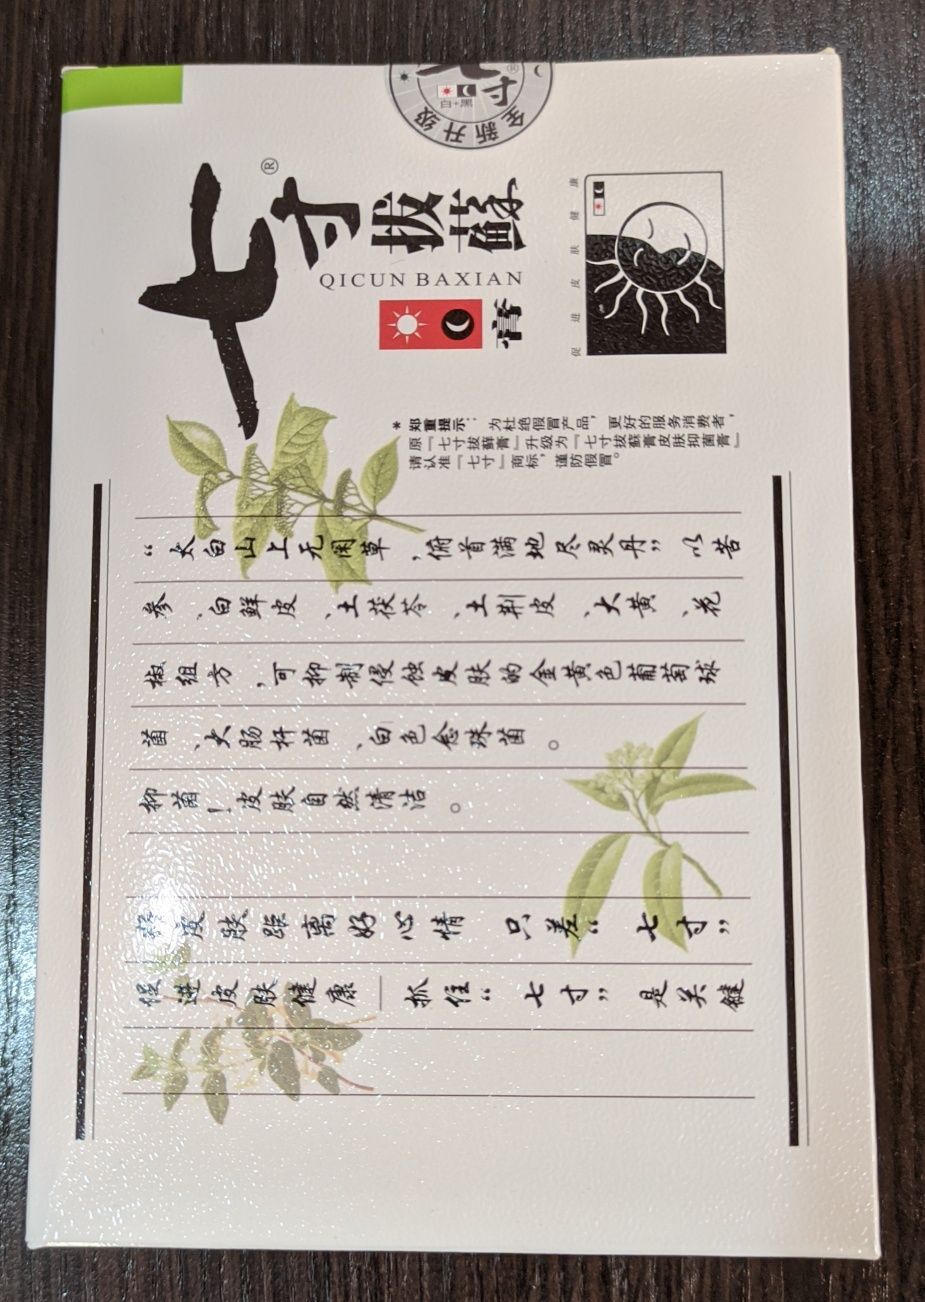 七寸®
白+黑
全新升级
七寸®拔蘚
QICUN BAXIAN
膏
促进皮肤健康
*郑重提示：为杜绝假冒产品，更好的服务消费者，
原『七寸拔蘚膏』升级为『七寸拔蘚膏皮肤抑菌膏』
请认准『七寸』商标，谨防假冒。
“太白山上无闲草，俯首满地尽灵丹”以苦
参、白鲜皮、土茯苓、土荆皮、大黄、花
椒组方，可抑制侵蚀皮肤的金黄色葡萄球
菌、大肠杆菌、白色念珠菌。
抑菌！皮肤自然清洁。
皮肤距离好心情 只差“七寸”
促进皮肤健康—抓住“七寸”是关键